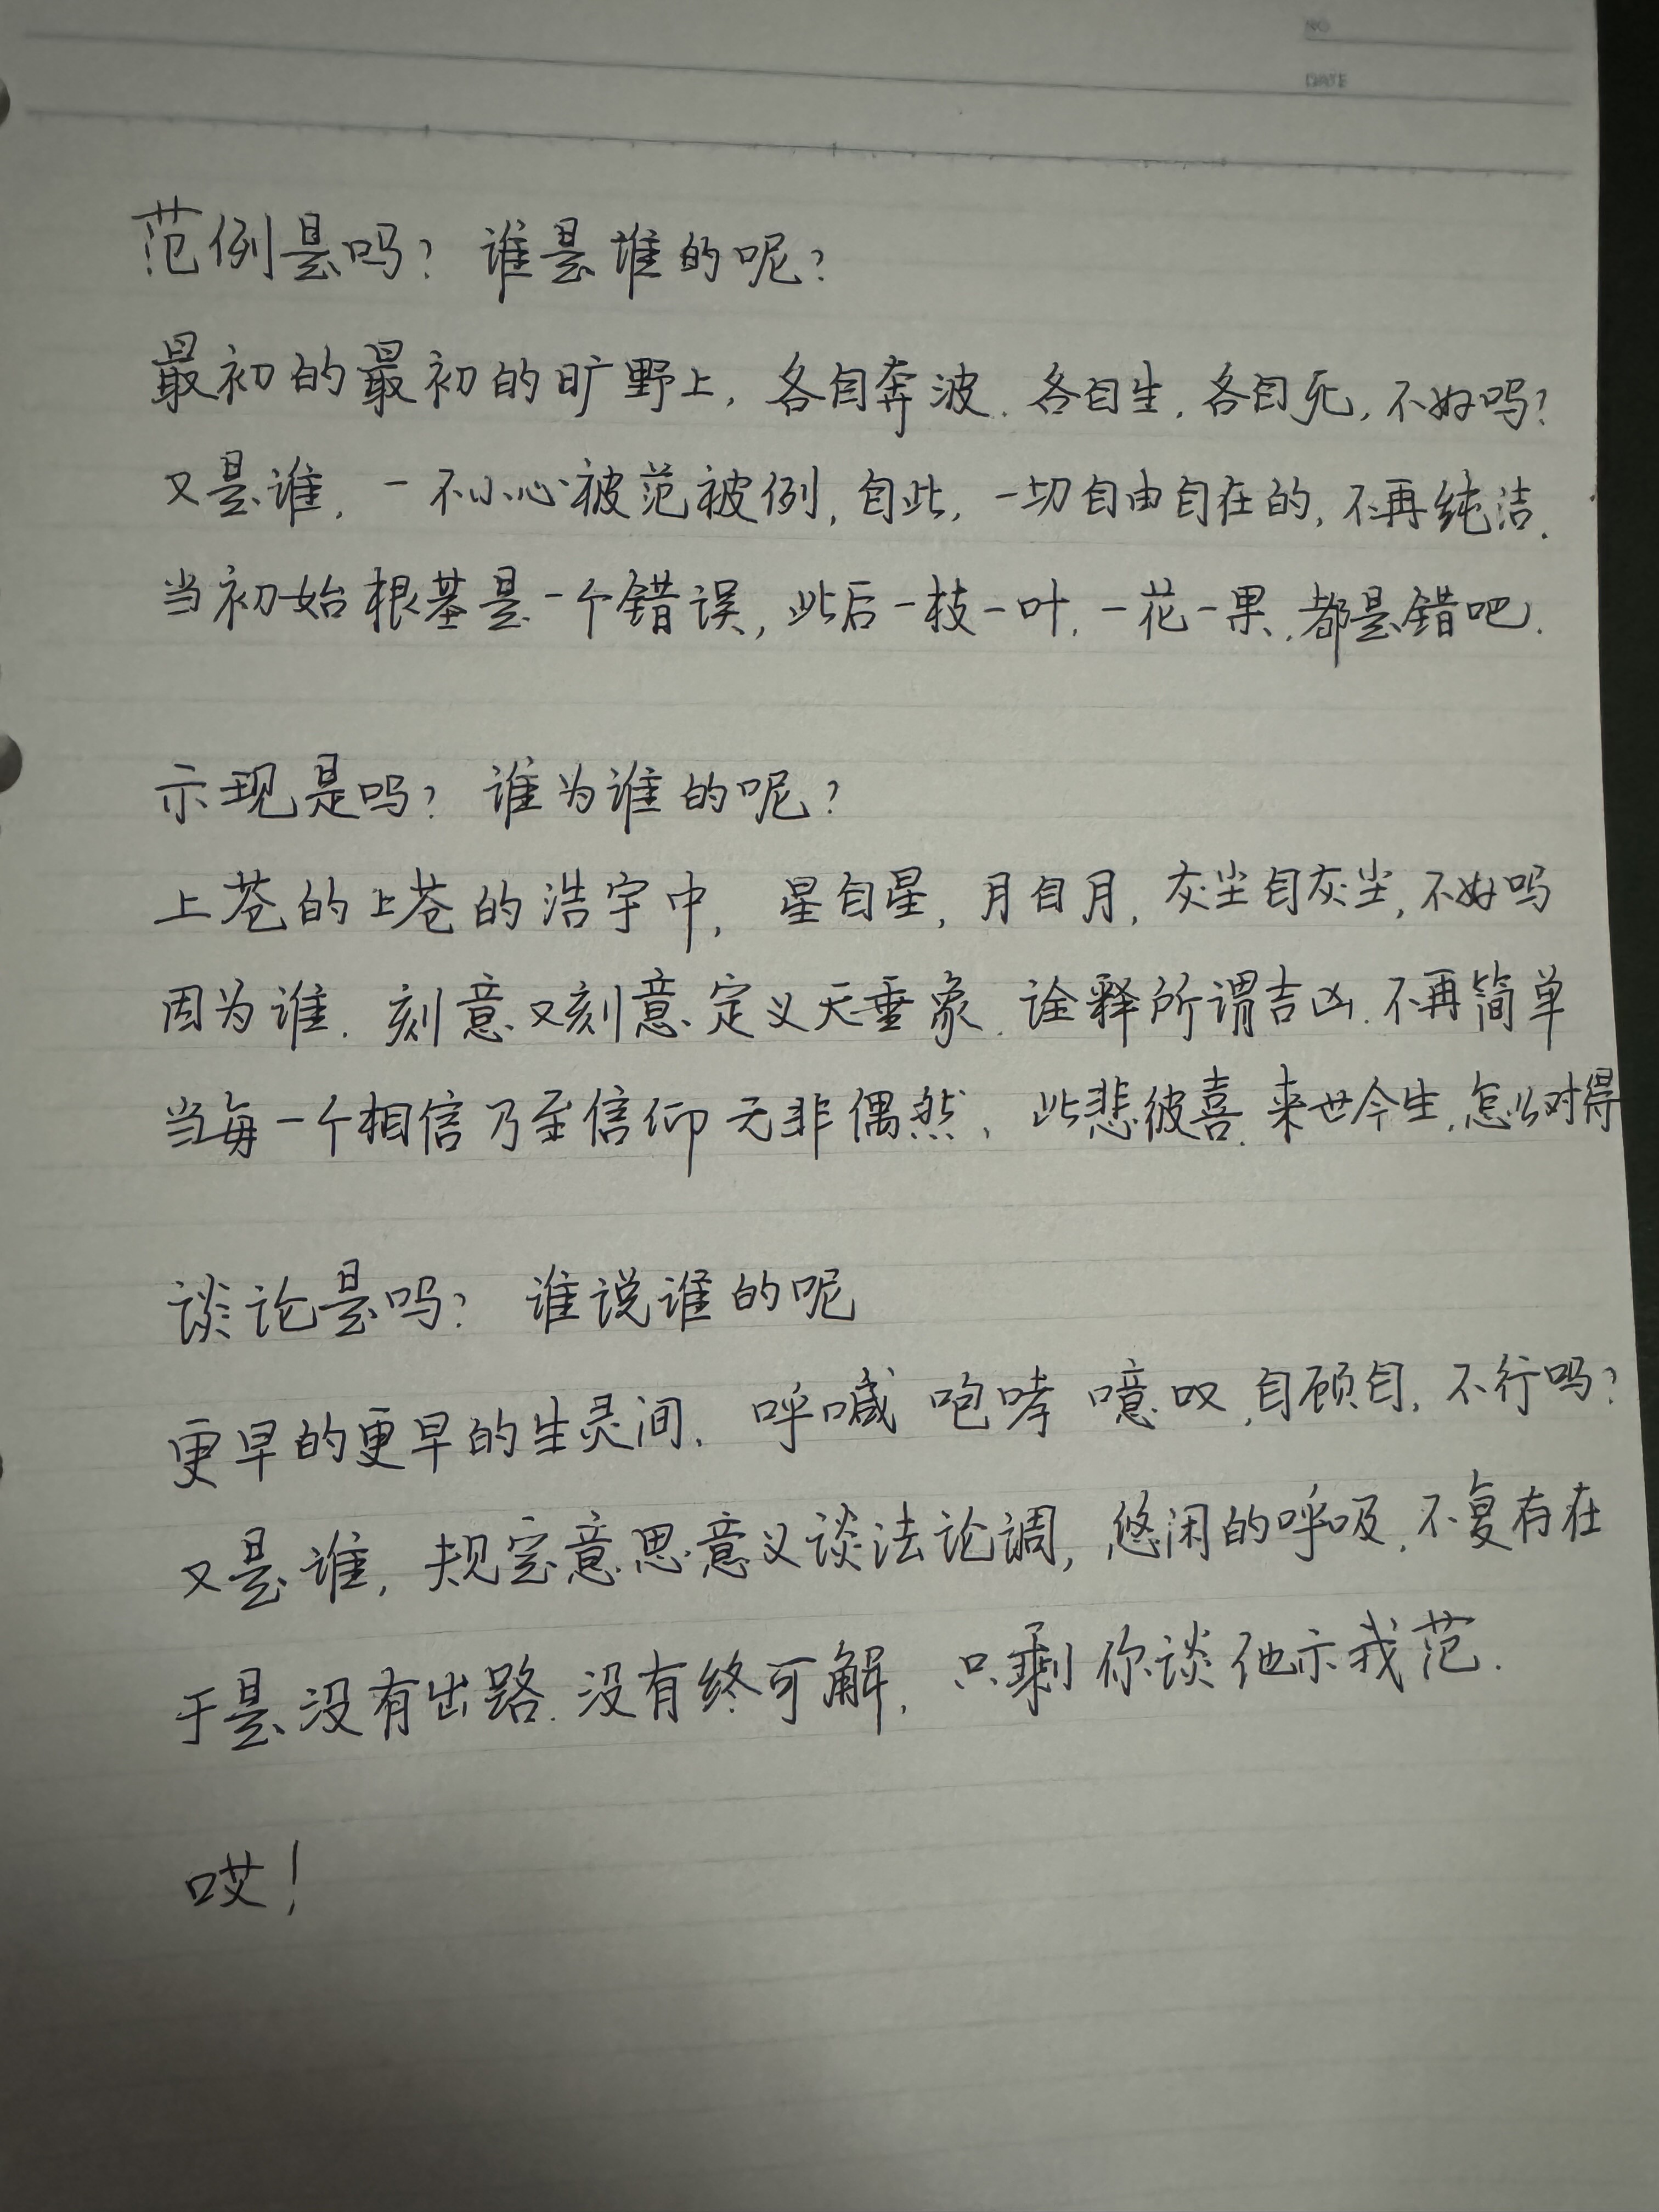 NO
DATE
范例是吗？谁是谁的呢？
最初的最初的旷野上，各自奔波．各自生．各自死，不好吗？
又是谁，一不小心被范被例，自此，一切自由自在的，不再纯洁．
当初始根基是一个错误，此后一枝一叶，一花一果，都是错吧．
示现是吗？谁为谁的呢？
上苍的上苍的浩宇中，星自星，月自月，灰尘自灰尘，不好吗
因为谁．刻意又刻意定义天垂象．诠释所谓吉凶．不再简单
当每一个相信乃至信仰无非偶然、此悲彼喜．来世今生，怎么对得
谈论是吗？谁说谁的呢
更早的更早的生灵间．呼喊 咆哮 噫叹，自顾自，不行吗？
又是谁，规定意思意义谈法论调，悠闲的呼吸．不复有在
于是没有出路．没有终可解，只剩你谈他示我范．
哎！